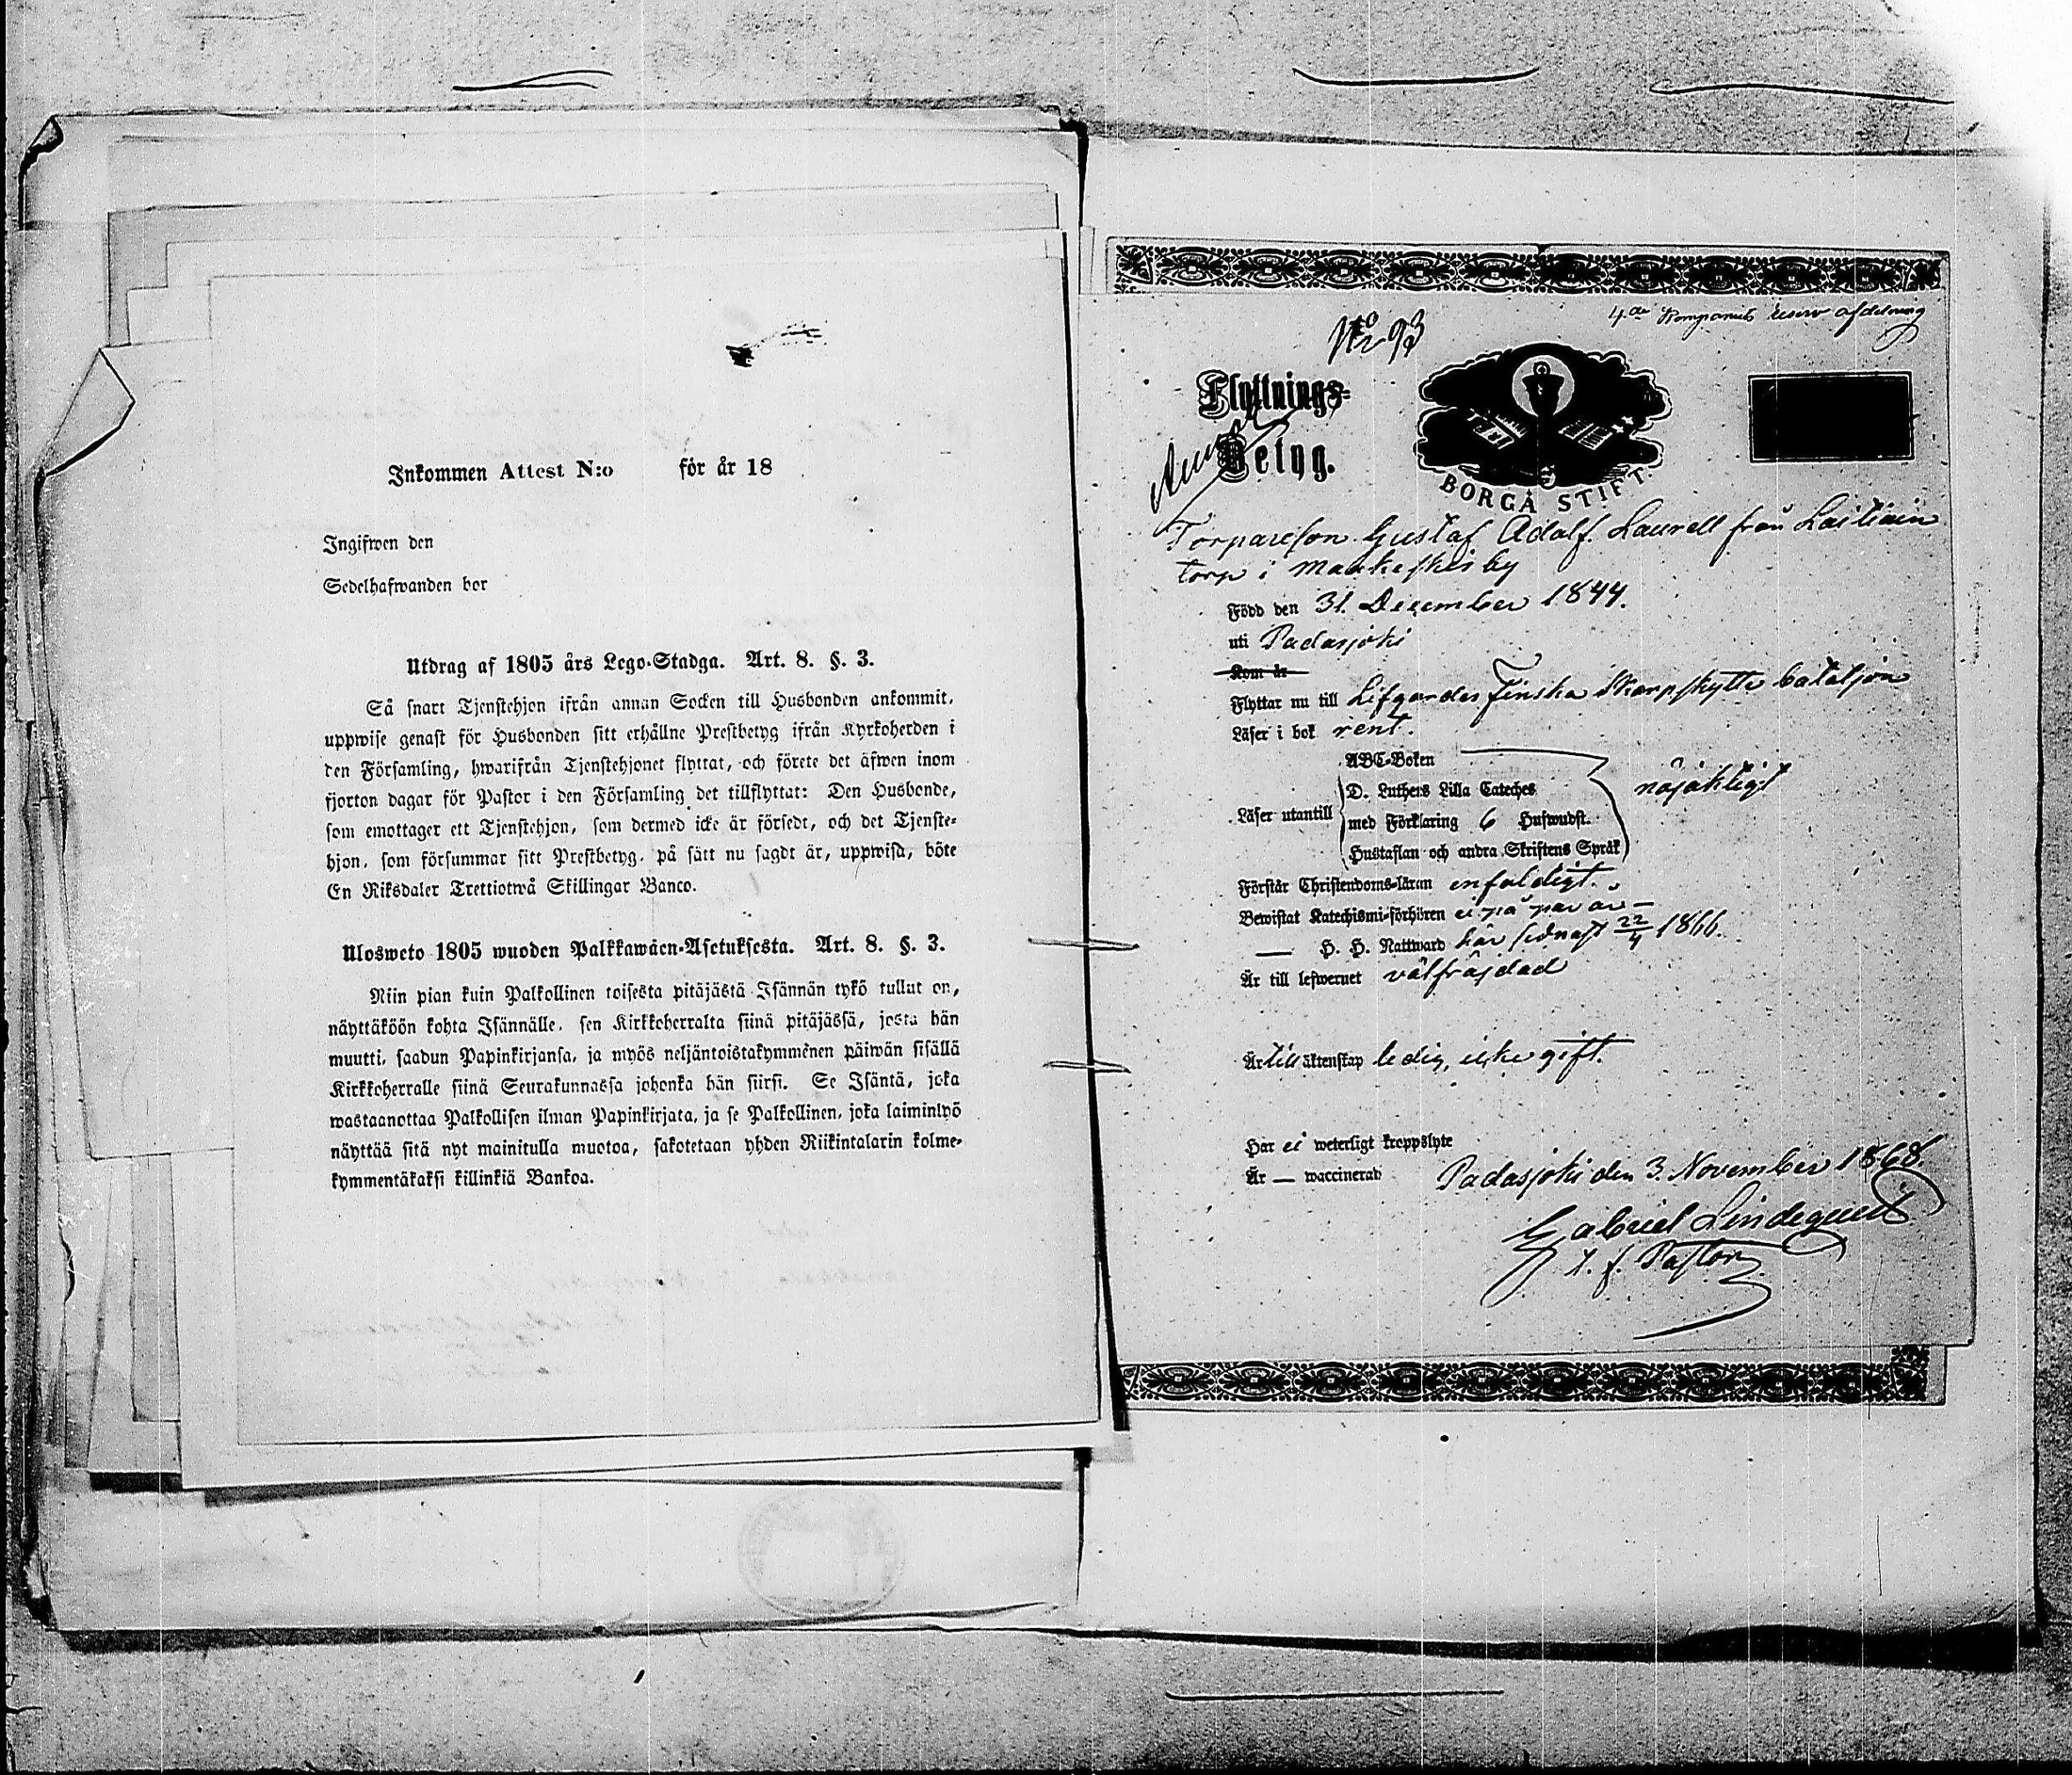 Inkommen Attest N:o för år 18
Ingifwen den
Sedelhafwanden bor
Utdrag af 1805 års Lego-Stadga. Art. 8. §. 3.
Så snart Tjenstehjon ifrån annan Socken till Husbonden ankommit,
uppwise genast för Husbonden sitt erhållne Prestbetyg ifrån Kyrkoherden i
den Församling, hwarifrån Tjenstehjonet flyttat, och förete det äfwen inom
fjorton dagar för Pastor i den Församling det tillflyttat: Den Husbonde,
som emottager ett Tjenstehjon, som dermed icke är försedt, och det Tjenste-
hjon, som försummar sitt Prestbetyg, på sätt nu sagdt är, uppwisa, böte
En Riksdaler Trettiotwå Skillingar Banco.
Ulosweto 1805 wuoden Palkkawäen-Asetuksesta. Art. 8. §. 3.
Niin pian kuin Palkollinen toisesta pitäjästä Isännän tykö tullut on,
näyttäköön kohta Isännälle, sen Kirkkoherralta siinä pitäjässä, josta hän
muutti, saadun Papinkirjansa, ja myös neljäntoistakymmenen päiwän sisällä
Kirkkoherralle siinä Seurakunnassa johonka hän siirsi. Se Isäntä, joka
wastaanottaa Palkollisen ilman Papinkirjata, ja se Palkollinen, joka laiminlyö
näyttää sitä nyt mainitulla muotoa, sakotetaan yhden Riikintalarin kolme-
kymmentäkaksi killinkiä Bankoa.
4de Kompaniets reserv afdelning
No 93
Flyttnings-
Betyg.
BORGÅ STIFT
Torpareson Gustaf Adolf Laurell från Laitiain
torp i Maakeskis by
Född den 31. December 1844.
uti Padasjoki
Kom år
Flyttar nu till Lifgardes Finska Skarpskytte bataljon
Läser i bok rent.
ABC-Boken
Läser utantill D. Luthers Lilla Cateches nöjaktigt
med Förklaring 6 Hufwudst.
Hustaflan och andra Skriftens Språk
Förstår Christendoms-läran enfaldigt.
Bewistat Katechismi-förhören ei på par år —
— H. H. Nattward här sednast 22/4 1866.
Är till lefwernet välfräjdad
Är till äktenskap ledig, icke gift.
Har ei weterligt kroppslyte
Är — waccinerad
Padasjoki den 3. November 1868.
Gabriel Lindequist
t. f. Pastor